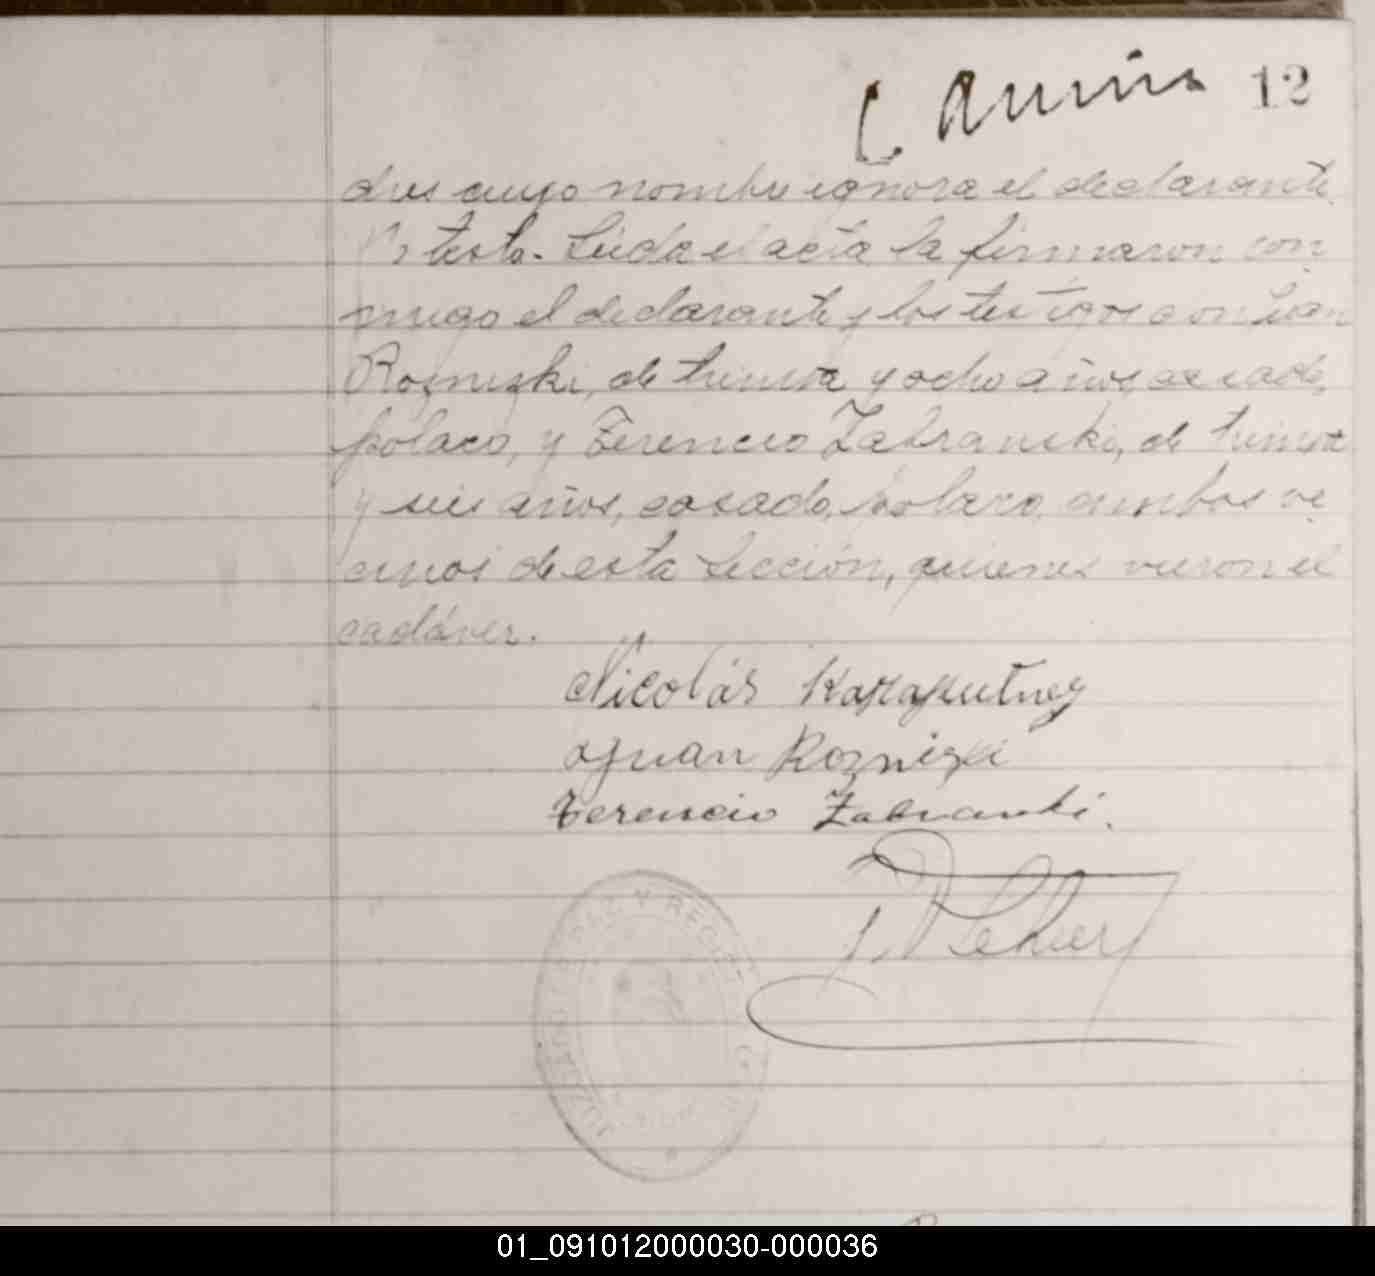 12
dres cuyo nombre ignora el declarante
testo. Leída el acta la firmaron con
migo el declarante y los testigos don Juan
Rozniszki, de treinta y ocho años, casado,
polaco, y Terencio Zabranski, de treinta
y seis años, casado, polaco, ambos ve
cinos de esta Sección, quienes vieron el
cadáver.
Nicolás Karakutney
Juan Rozniski
Terencio Zabranski.
JUZGADO DE PAZ Y REGIST
01_091012000030-000036